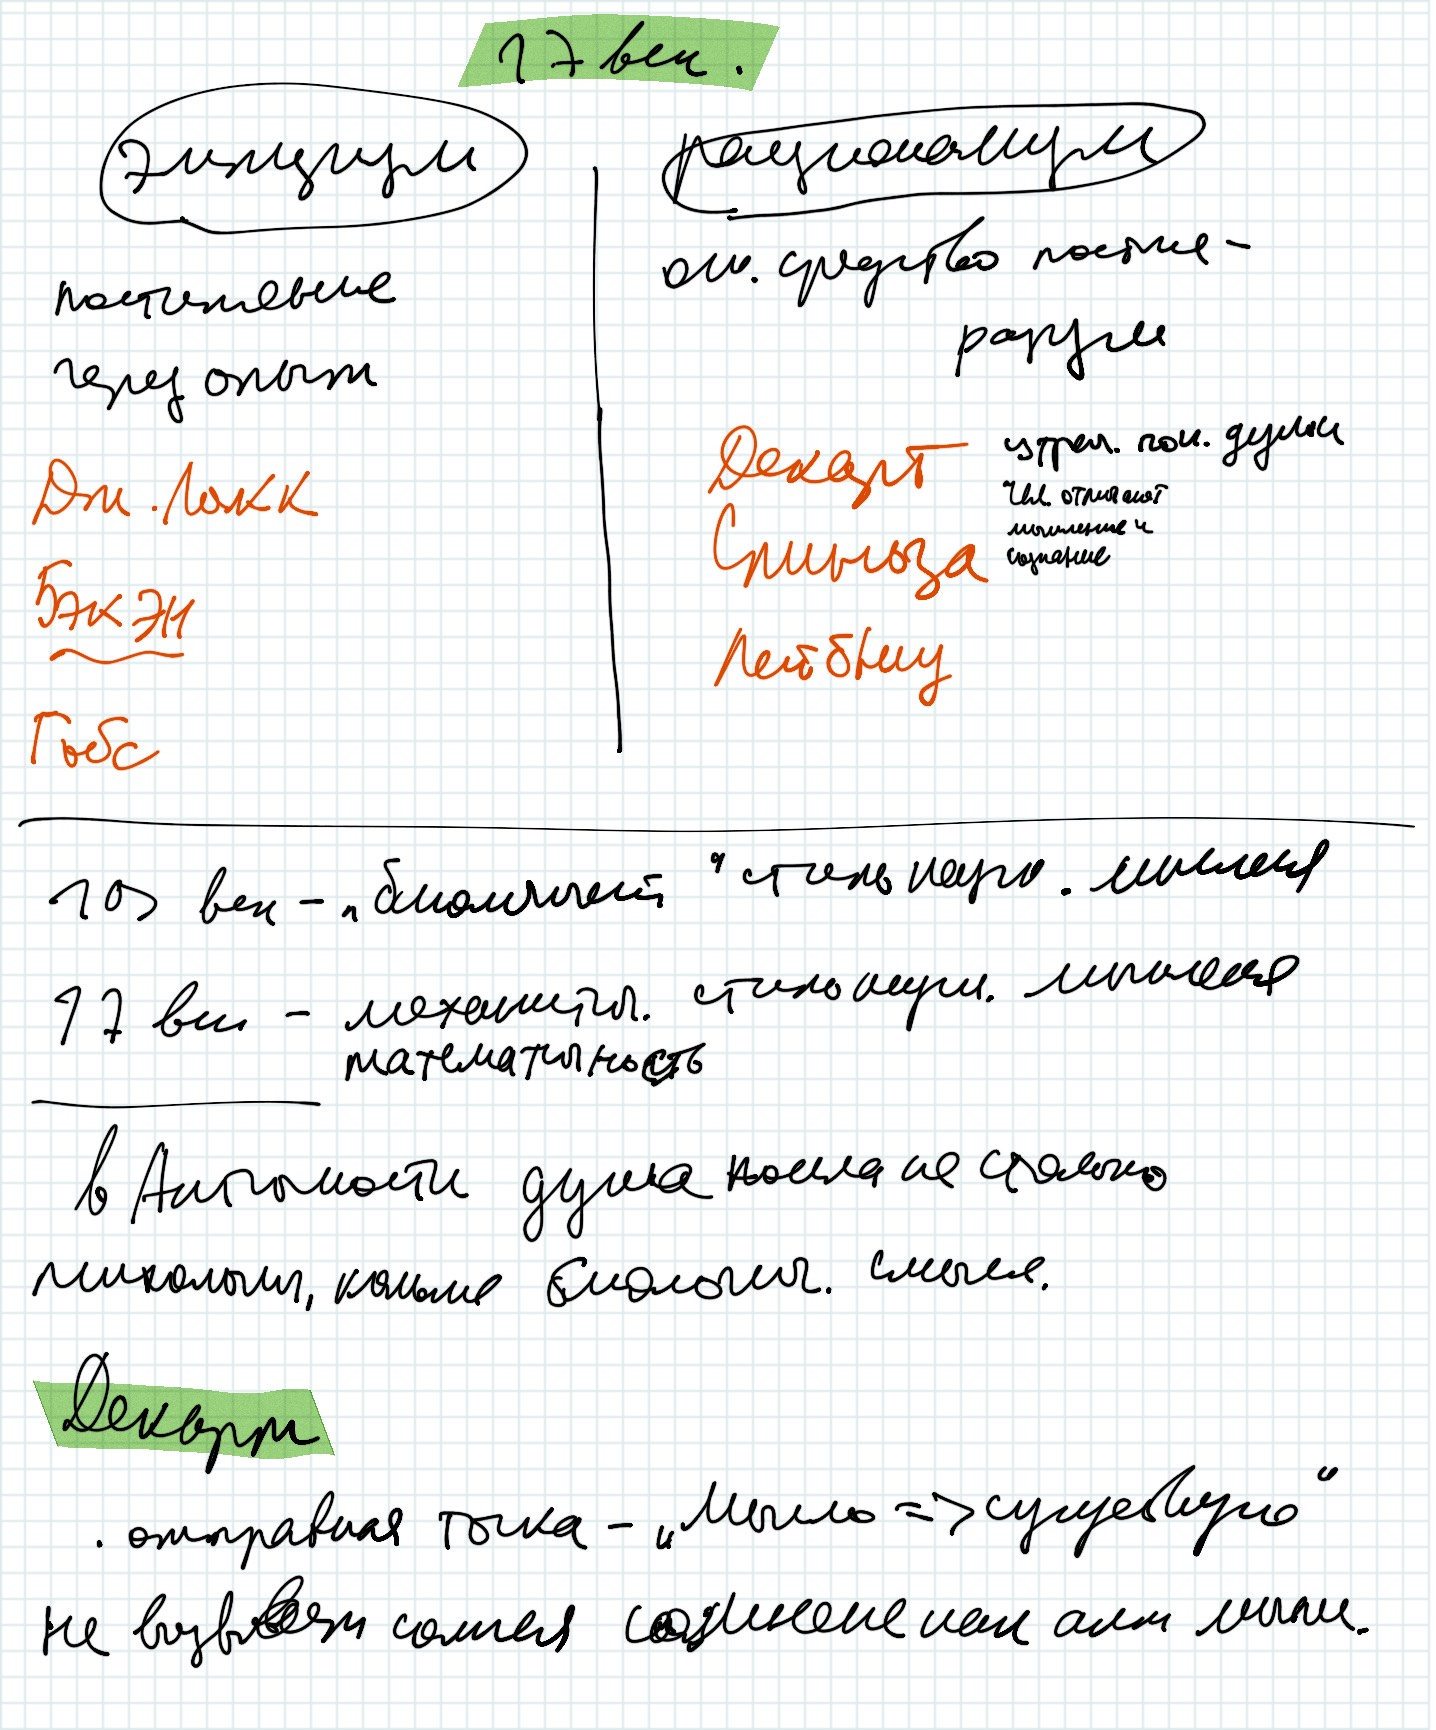 17 век.
эмпиризм
постижение
через опыт
Дж. Локк
Бэкэн
Гобс
рационализм
осн. средство постиж -
разум
Декарт
Спиноза
Лейбниц
устран. пон. души
Чел. отличают
мышление и
сознание
век - „биологический" стиль научн. мышления
17 век - механистич. стиль научн. мышления
математичность
в Античности душа носила не столько
психологич, сколько биологич. смысл.
Декарт
. отправная точка - „Мыслю => существую"
не вызывает сомнения сознание как акт мышл.